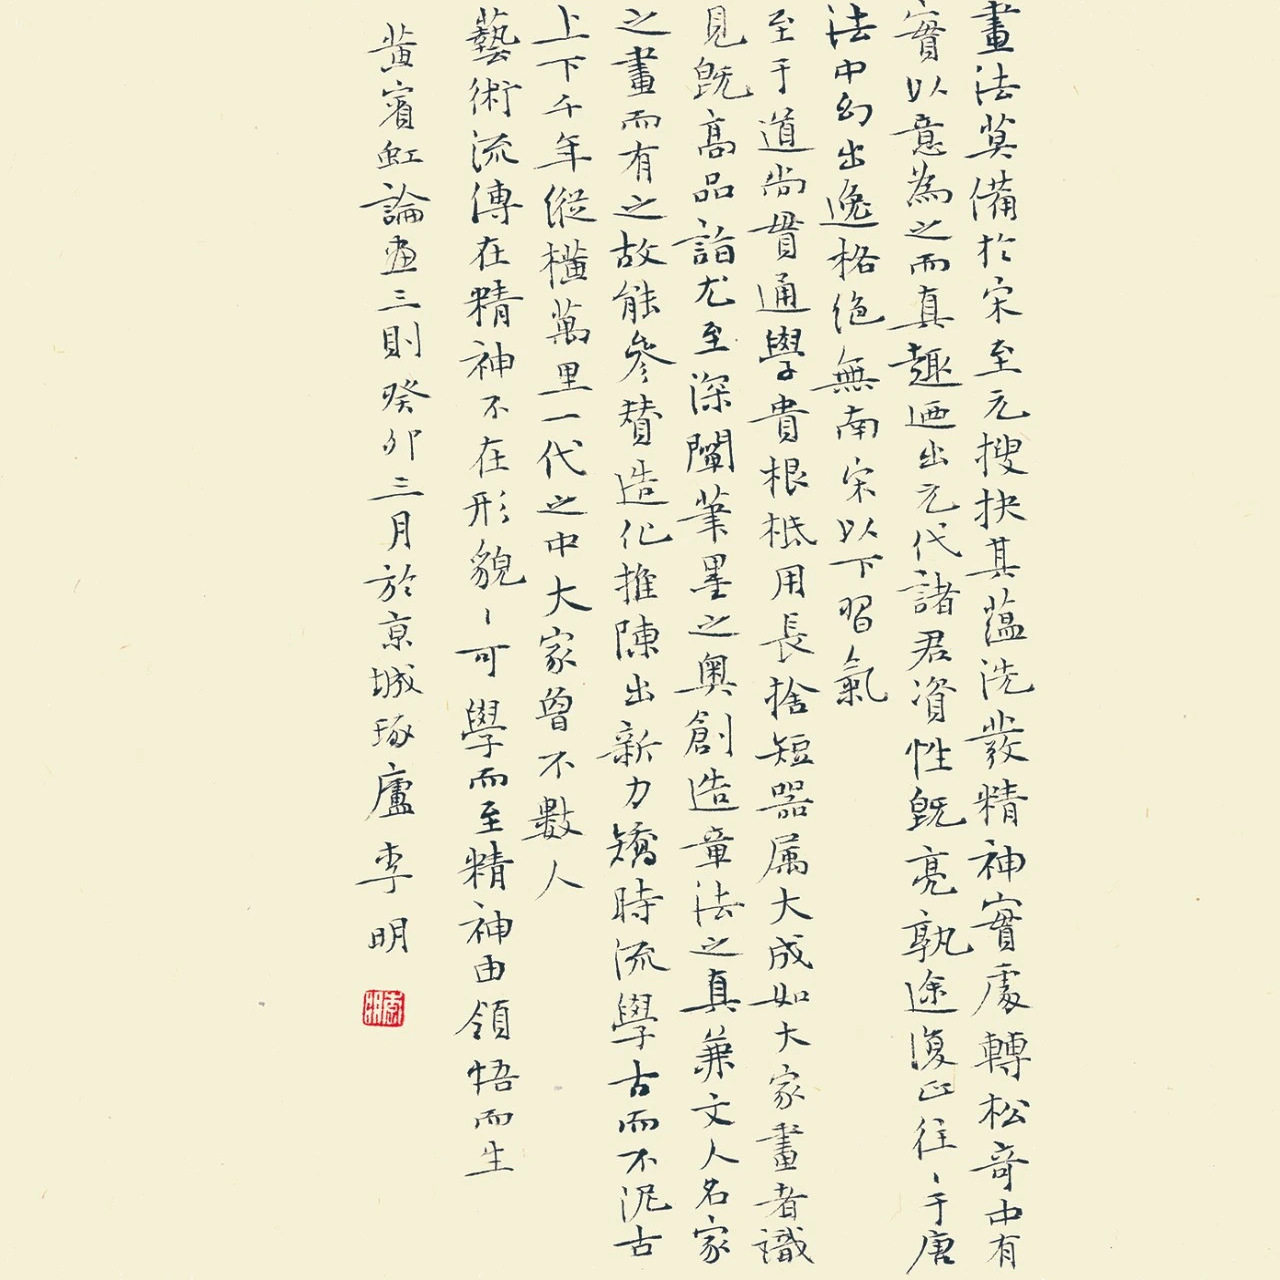 畫法莫備於宋至元搜抉其蘊洗發精神實處轉松奇中有
實以意為之而真趣迺出元代諸君資性既亮孰途復正往〻于唐
法中幻出逸格絕無南宋以下習氣
至于道尚貫通學貴根柢用長捨短器属大成如大家畫者識
見既高品詣尤至深闡筆墨之奧創造章法之真兼文人名家
之畫而有之故能參贊造化推陳出新力矯時流學古而不泥古
上下千年縱橫萬里一代之中大家曾不數人
藝術流傳在精神不在形貌〻可學而至精神由領悟而生
黃賓虹論畫三則癸卯三月於京城琢廬李明
李明